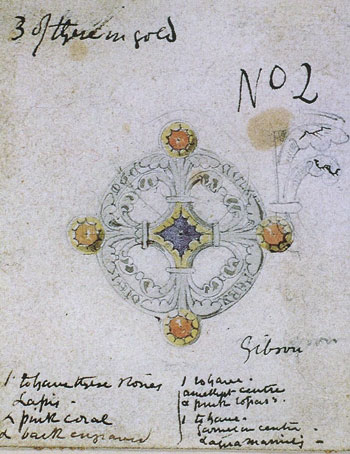 3 of these in gold
No 2
Gibson
1 to have these stones
Lapis
& pink coral
& back engraved
1 to have
amethyst centre
& pink topaz
1 to have
centre
Aquamarines